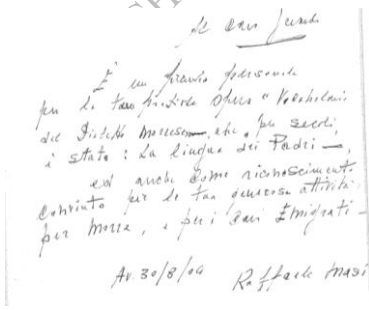 Al Caro
È un premio personale
per la tua opera "Vocabolario
del Dialetto Morrese", che, per secoli,
è stato: La lingua dei Padri —,
ed anche come riconoscimento
convinto per la tua generosa attività
per Morra, e per i cari Emigrati —
Av. 30/8/04 Raffaele Masi